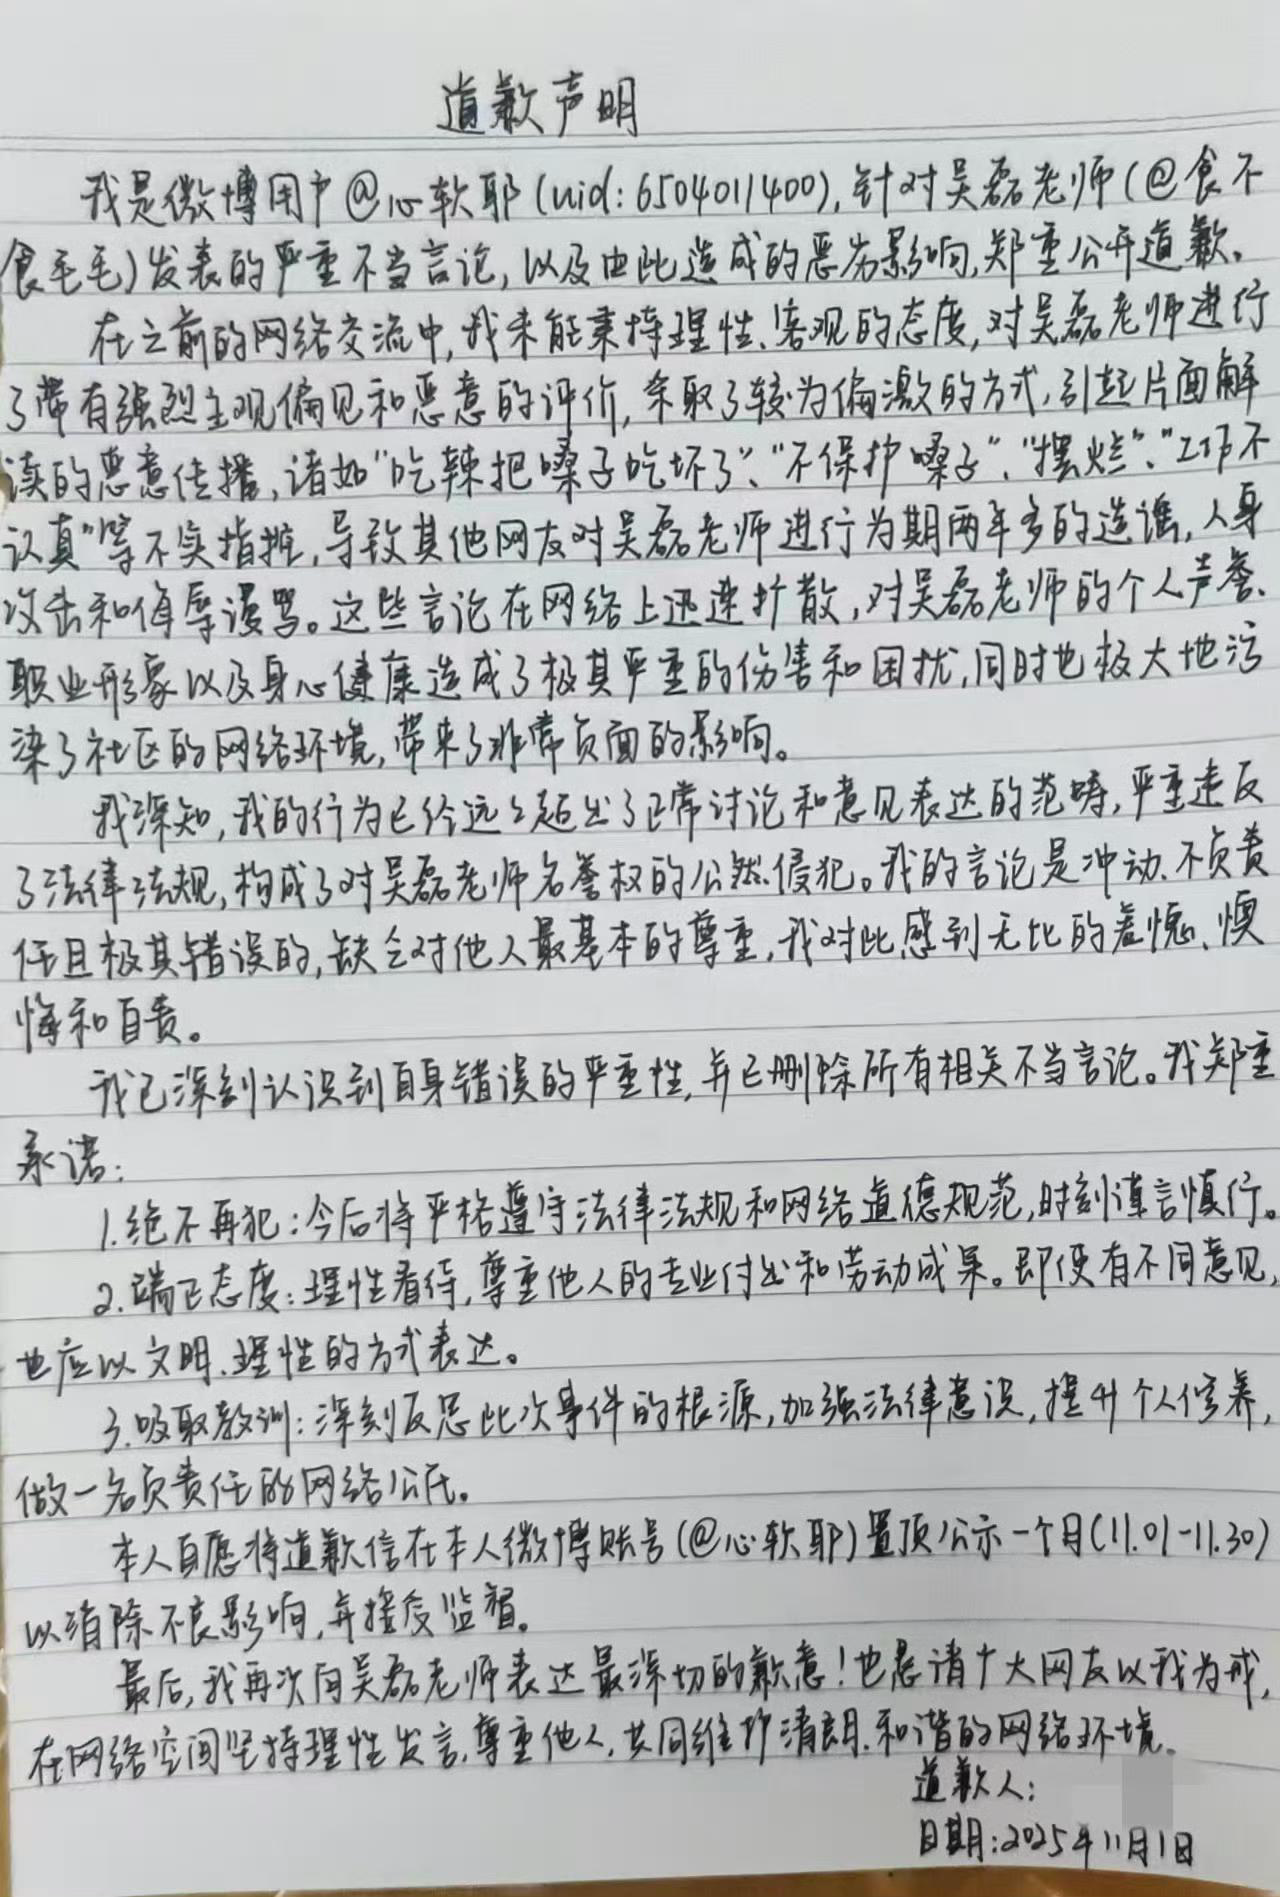 道歉声明
我是微博用户@心软耶(uid:6504011400),针对吴磊老师(@食不
食毛毛)发表的严重不当言论,以及由此造成的恶劣影响,郑重公开道歉。
在之前的网络交流中,我未能秉持理性、客观的态度,对吴磊老师进行
了带有强烈主观偏见和恶意的评价,采取了较为偏激的方式,引起片面解
读的恶意传播,诸如“吃辣把嗓子吃坏了”、“不保护嗓子”、“摆烂”、“工作不
认真”等不实指摘,导致其他网友对吴磊老师进行为期两年多的造谣,人身
攻击和侮辱谩骂。这些言论在网络上迅速扩散,对吴磊老师的个人声誉、
职业形象以及身心健康造成了极其严重的伤害和困扰,同时也极大地污
染了社区的网络环境,带来了非常负面的影响。
我深知,我的行为已经远远超出了正常讨论和意见表达的范畴,严重违反
了法律法规,构成了对吴磊老师名誉权的公然侵犯。我的言论是冲动、不负责
任且极其错误的,缺乏对他人最基本的尊重,我对此感到无比的羞愧、懊
悔和自责。
我已深刻认识到自身错误的严重性,并已删除所有相关不当言论。我郑重
承诺:
1.绝不再犯:今后将严格遵守法律法规和网络道德规范,时刻谨言慎行。
2.端正态度:理性看待,尊重他人的专业付出和劳动成果。即使有不同意见,
也应以文明、理性的方式表达。
3.吸取教训:深刻反思此次事件的根源,加强法律意识,提升个人修养,
做一名负责任的网络公民。
本人自愿将道歉信在本人微博账号(@心软耶)置顶公示一个月(11.01-11.30)
以消除不良影响,并接受监督。
最后,我再次向吴磊老师表达最深切的歉意!也恳请广大网友以我为戒,
在网络空间坚持理性发言,尊重他人,共同维护清朗、和谐的网络环境。
道歉人:
日期:2025年11月1日